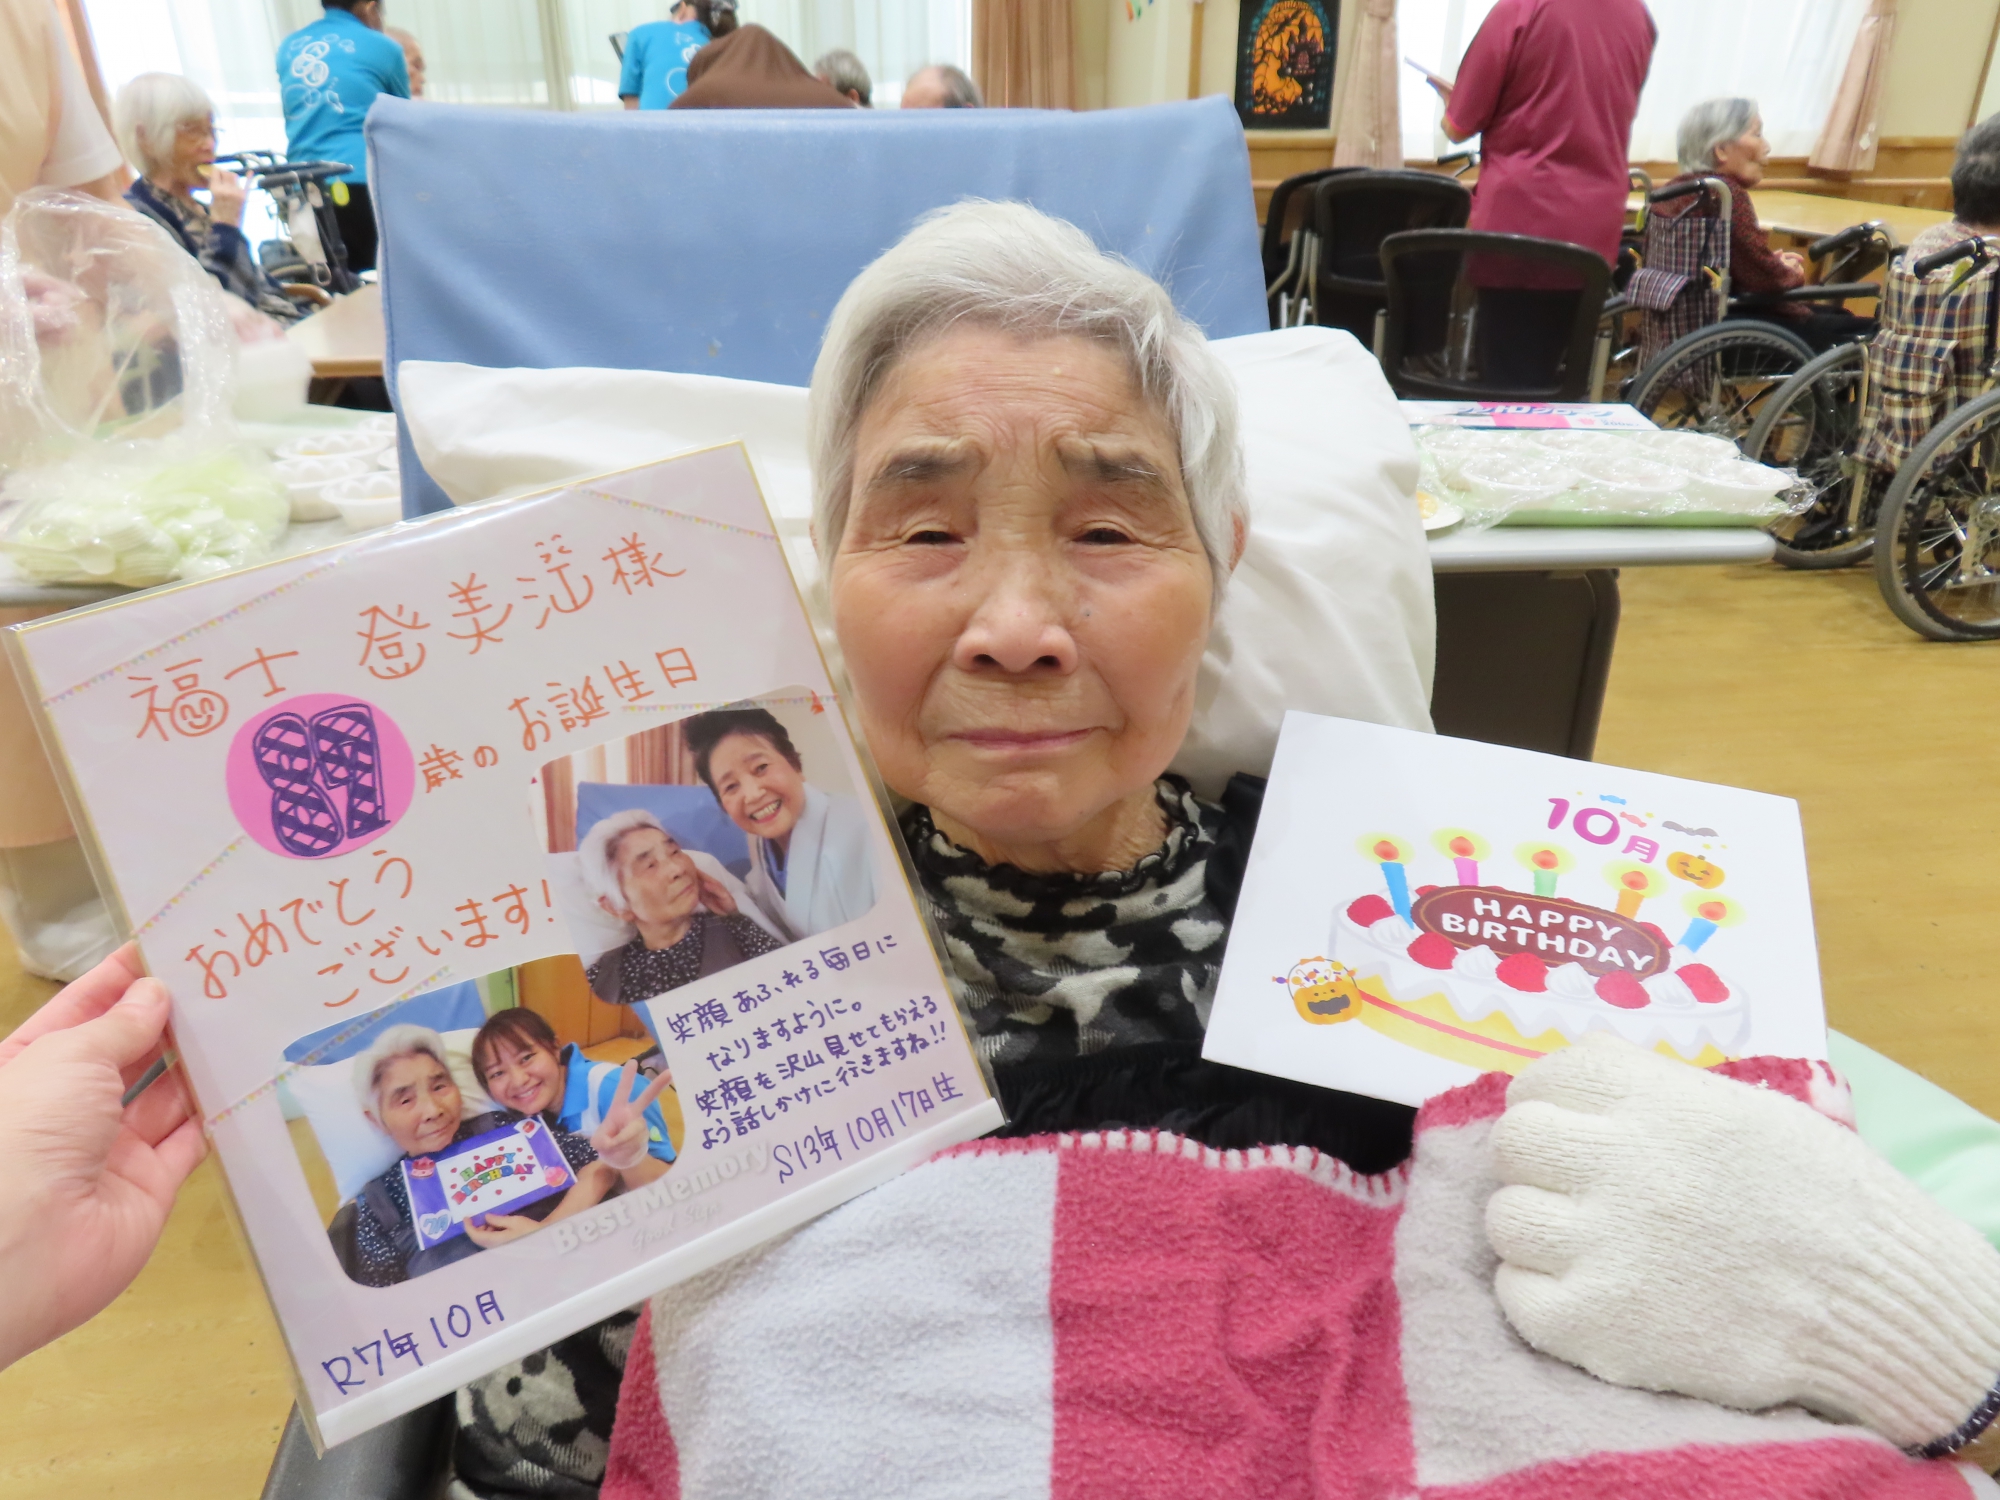 福士 登美江様
87歳のお誕生日
おめでとう
ございます!
笑顔あふれる毎日に
なりますように。
笑顔を沢山見せてもらえる
よう話しかけに行きますね!!
S13年10月17日生
Best Memory
HAPPY
BIRTHDAY
R7年10月
10月
HAPPY
BIRTHDAY